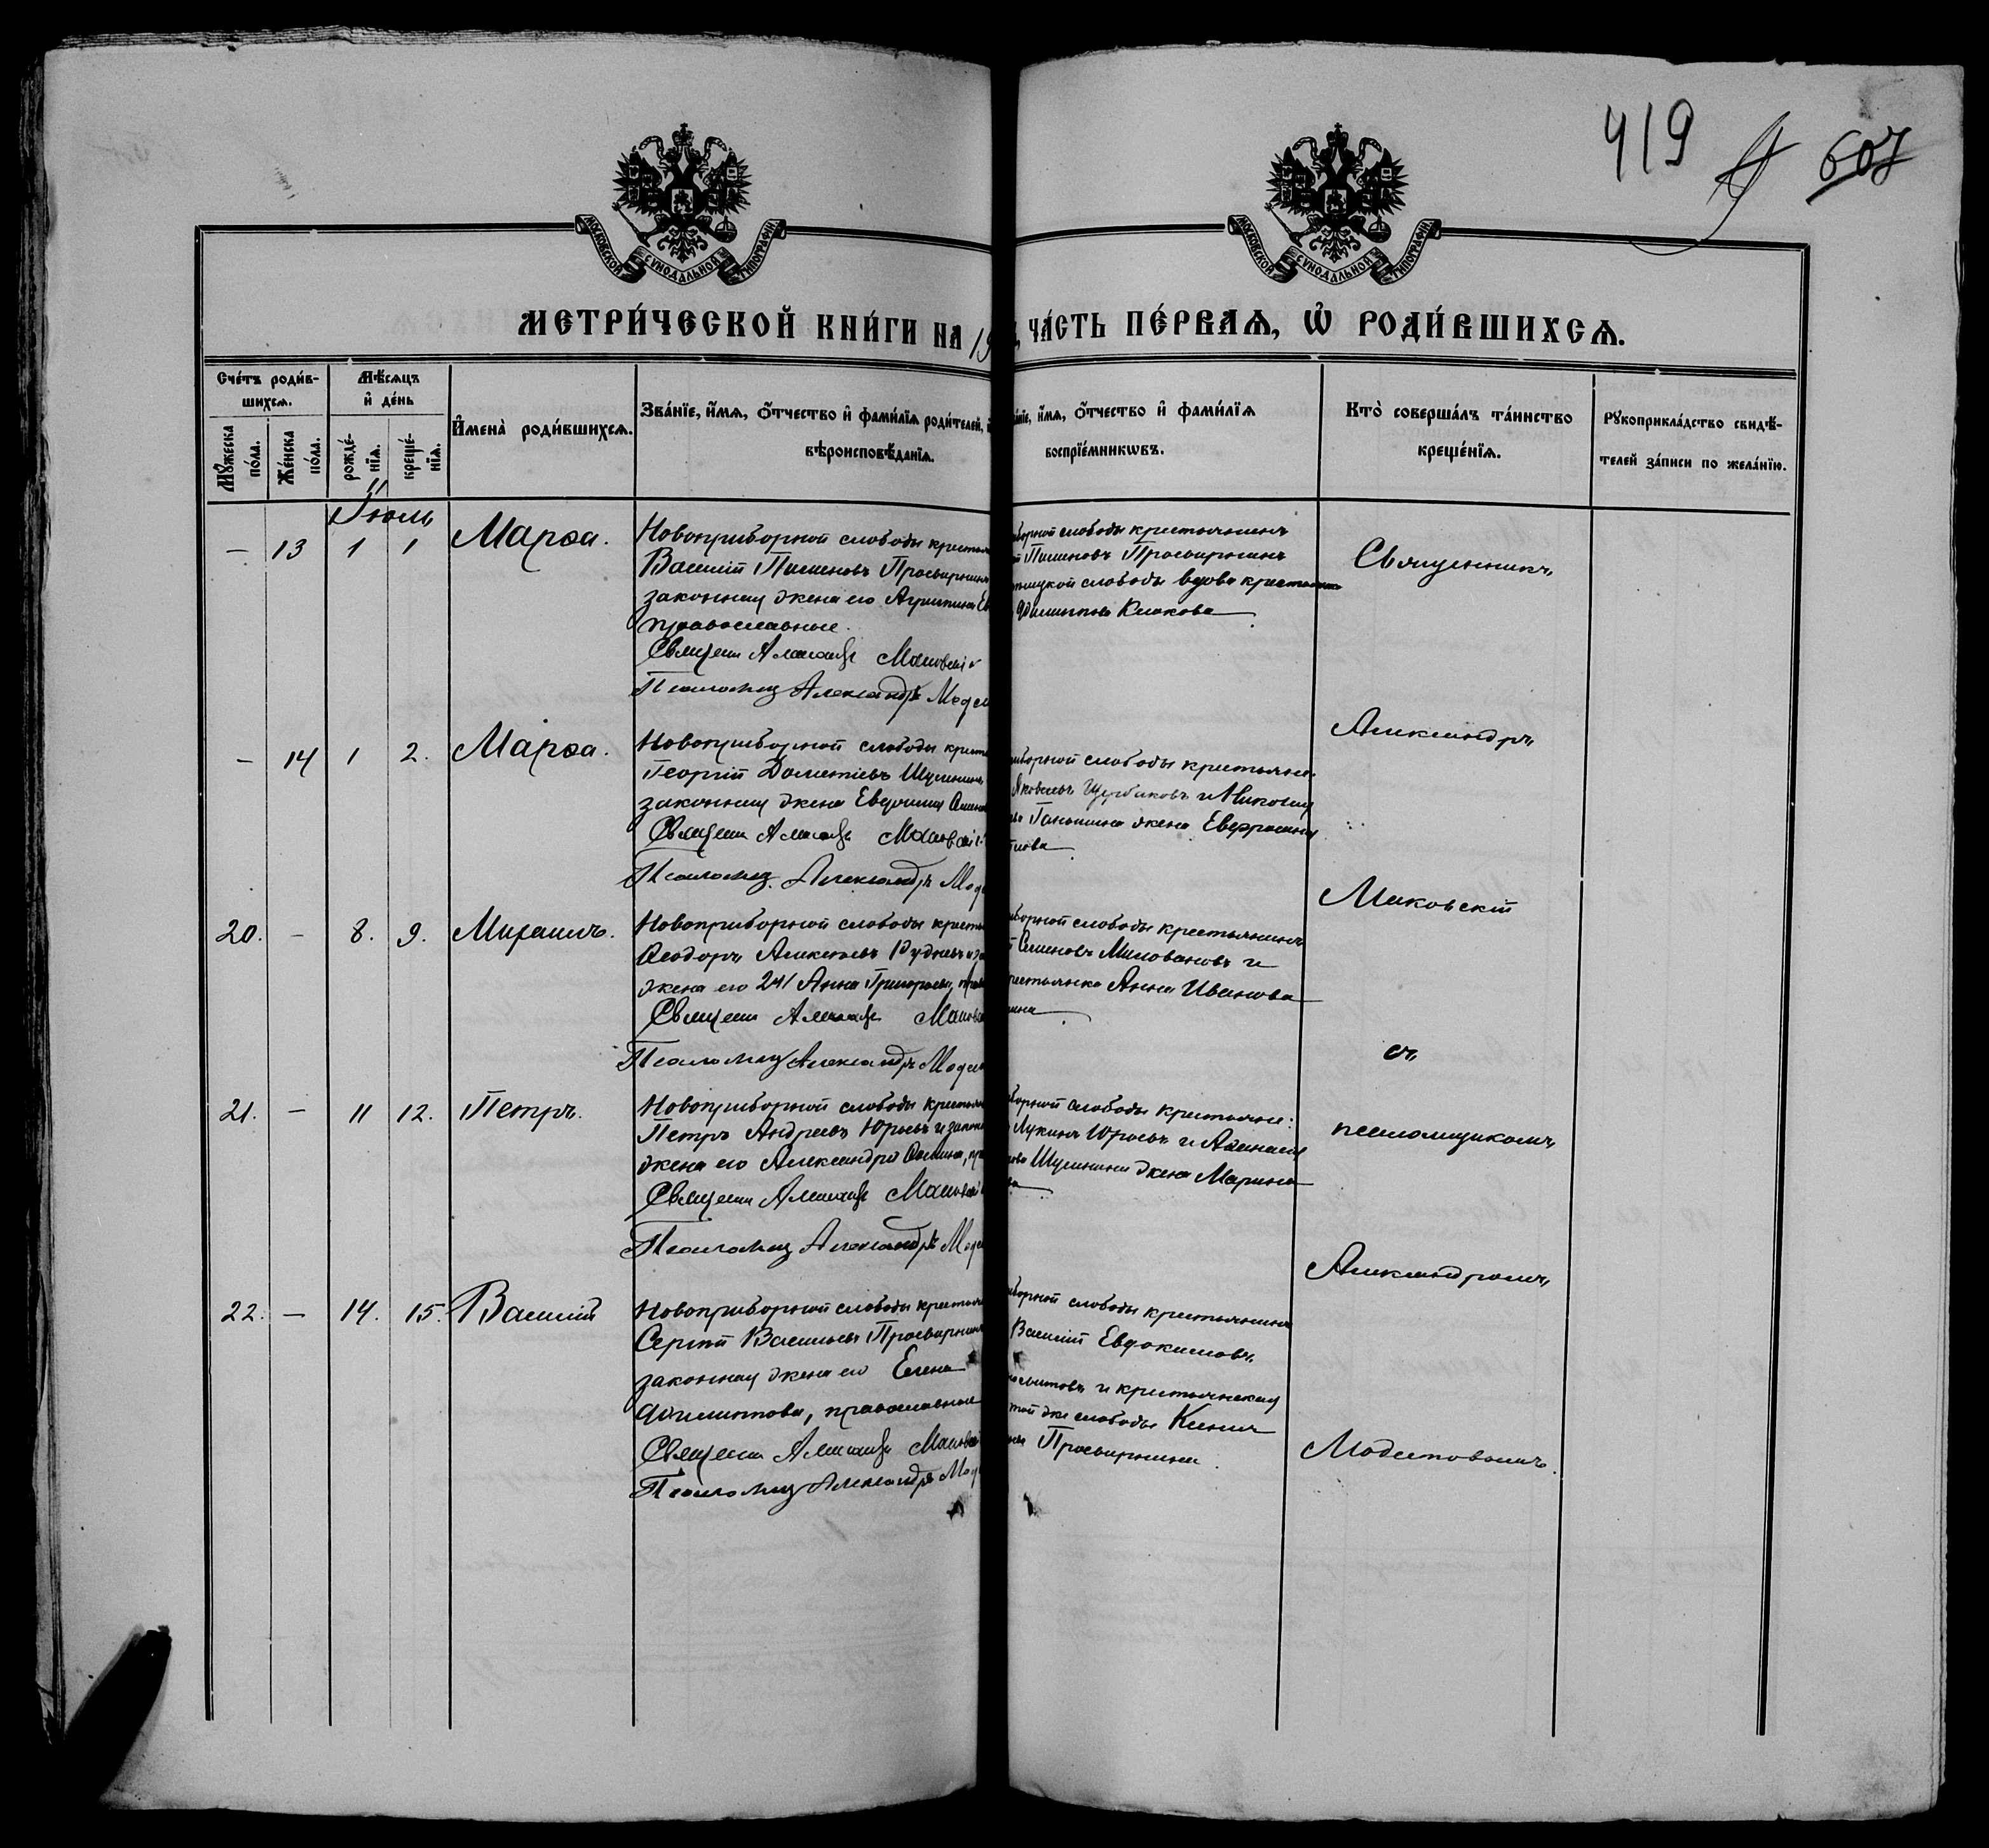 419 607
МОСКОВСКОЙ СѴНОДАЛЬНОЙ ТИПОГРАФІИ
МОСКОВСКОЙ СѴНОДАЛЬНОЙ ТИПОГРАФІИ
МЕТРИ́ЧЕСКОЙ КНИ́ГИ НА 19
ЧА́СТЬ ПЕ́РВАѦ, Ѡ҆ РОДИ́ВШИХСѦ.
Сче́тъ роди́в-
шихсѧ.
Мѣ́сѧцъ
и҆ де́нь
Мꙋ́жеска
по́ла.
Же́нска
по́ла.
рожде́-
нїѧ.
креще́-
нїѧ.
И҆мена̀ роди́вшихсѧ.
Зва́нїе, и҆́мѧ, ѻ҆́тчество и҆ фами́лїѧ роди́телей,
вѣроисповѣ́данїѧ.
а́нїе, и҆́мѧ, ѻ҆́тчество и҆ фами́лїѧ
воспрїе́мникѡвъ.
Кто̀ соверша́лъ та́инство
креще́нїѧ.
Рꙋкоприкла́дство свидѣ́-
телей за́писи по жела́нїю.
Іюль
— 13 1 1 Марѳа.
Новоприборной слободы крестья
Василій Пименовъ Просвирнинъ
законная жена его Агрипина Ев
православные.
Священ Александр Маковскій
Псаломщ Александръ Модес
борной слободы крестьянинъ
Пименовъ Просвирнинъ
слободы вдова крестьянка
Филиппова Клокова
Священникъ
— 14 1 2. Марѳа.
Новоприборной слободы кресть
Георгій Дометіевъ Шуленинъ
законная жена Евдокия Семен
Священ Александр Маковскій
Псаломщ. Александръ Мод
иборной слободы крестьяне:
Яковлевъ Щербаковъ и Николая
Ганьшина жена Евфросинія
Александръ
20. — 8. 9. Михаилъ.
Новоприборной слободы кресть
Ѳеодоръ Алексѣевъ Рудневъ и за
жена его Анна Григорьева, прав
Священ Александр Маковск
Псаломщ Александръ Модес
борной слободы крестьянинъ
Семеновъ Миловановъ и
рестьянка Анна Иванова
Маковскій
21. — 11 12. Петръ.
Новоприборной слободы крестья
Петръ Андреевъ Юрьевъ и закон
жена его Александра Ѳомина, пр
Священ Александр Маковскій
Псаломщ Александръ Моде
борной слободы крестьяне:
Лукинъ Юрьевъ и Аѳанасія
Шуленина жена Марина
съ
псаломщикомъ
22. — 14. 15. Василій
Новоприборной слободы крестья
Сергѣй Васильевъ Просвирнинъ
законная жена его Елена
Филиппова, православные
Священ Александр Маковскій
Псаломщ Александръ Мод
борной слободы крестьянинъ
Василій Евдокимовъ
и крестьянская
той же слободы Ксенія
Просвирнина.
Александромъ
Модестовымъ.